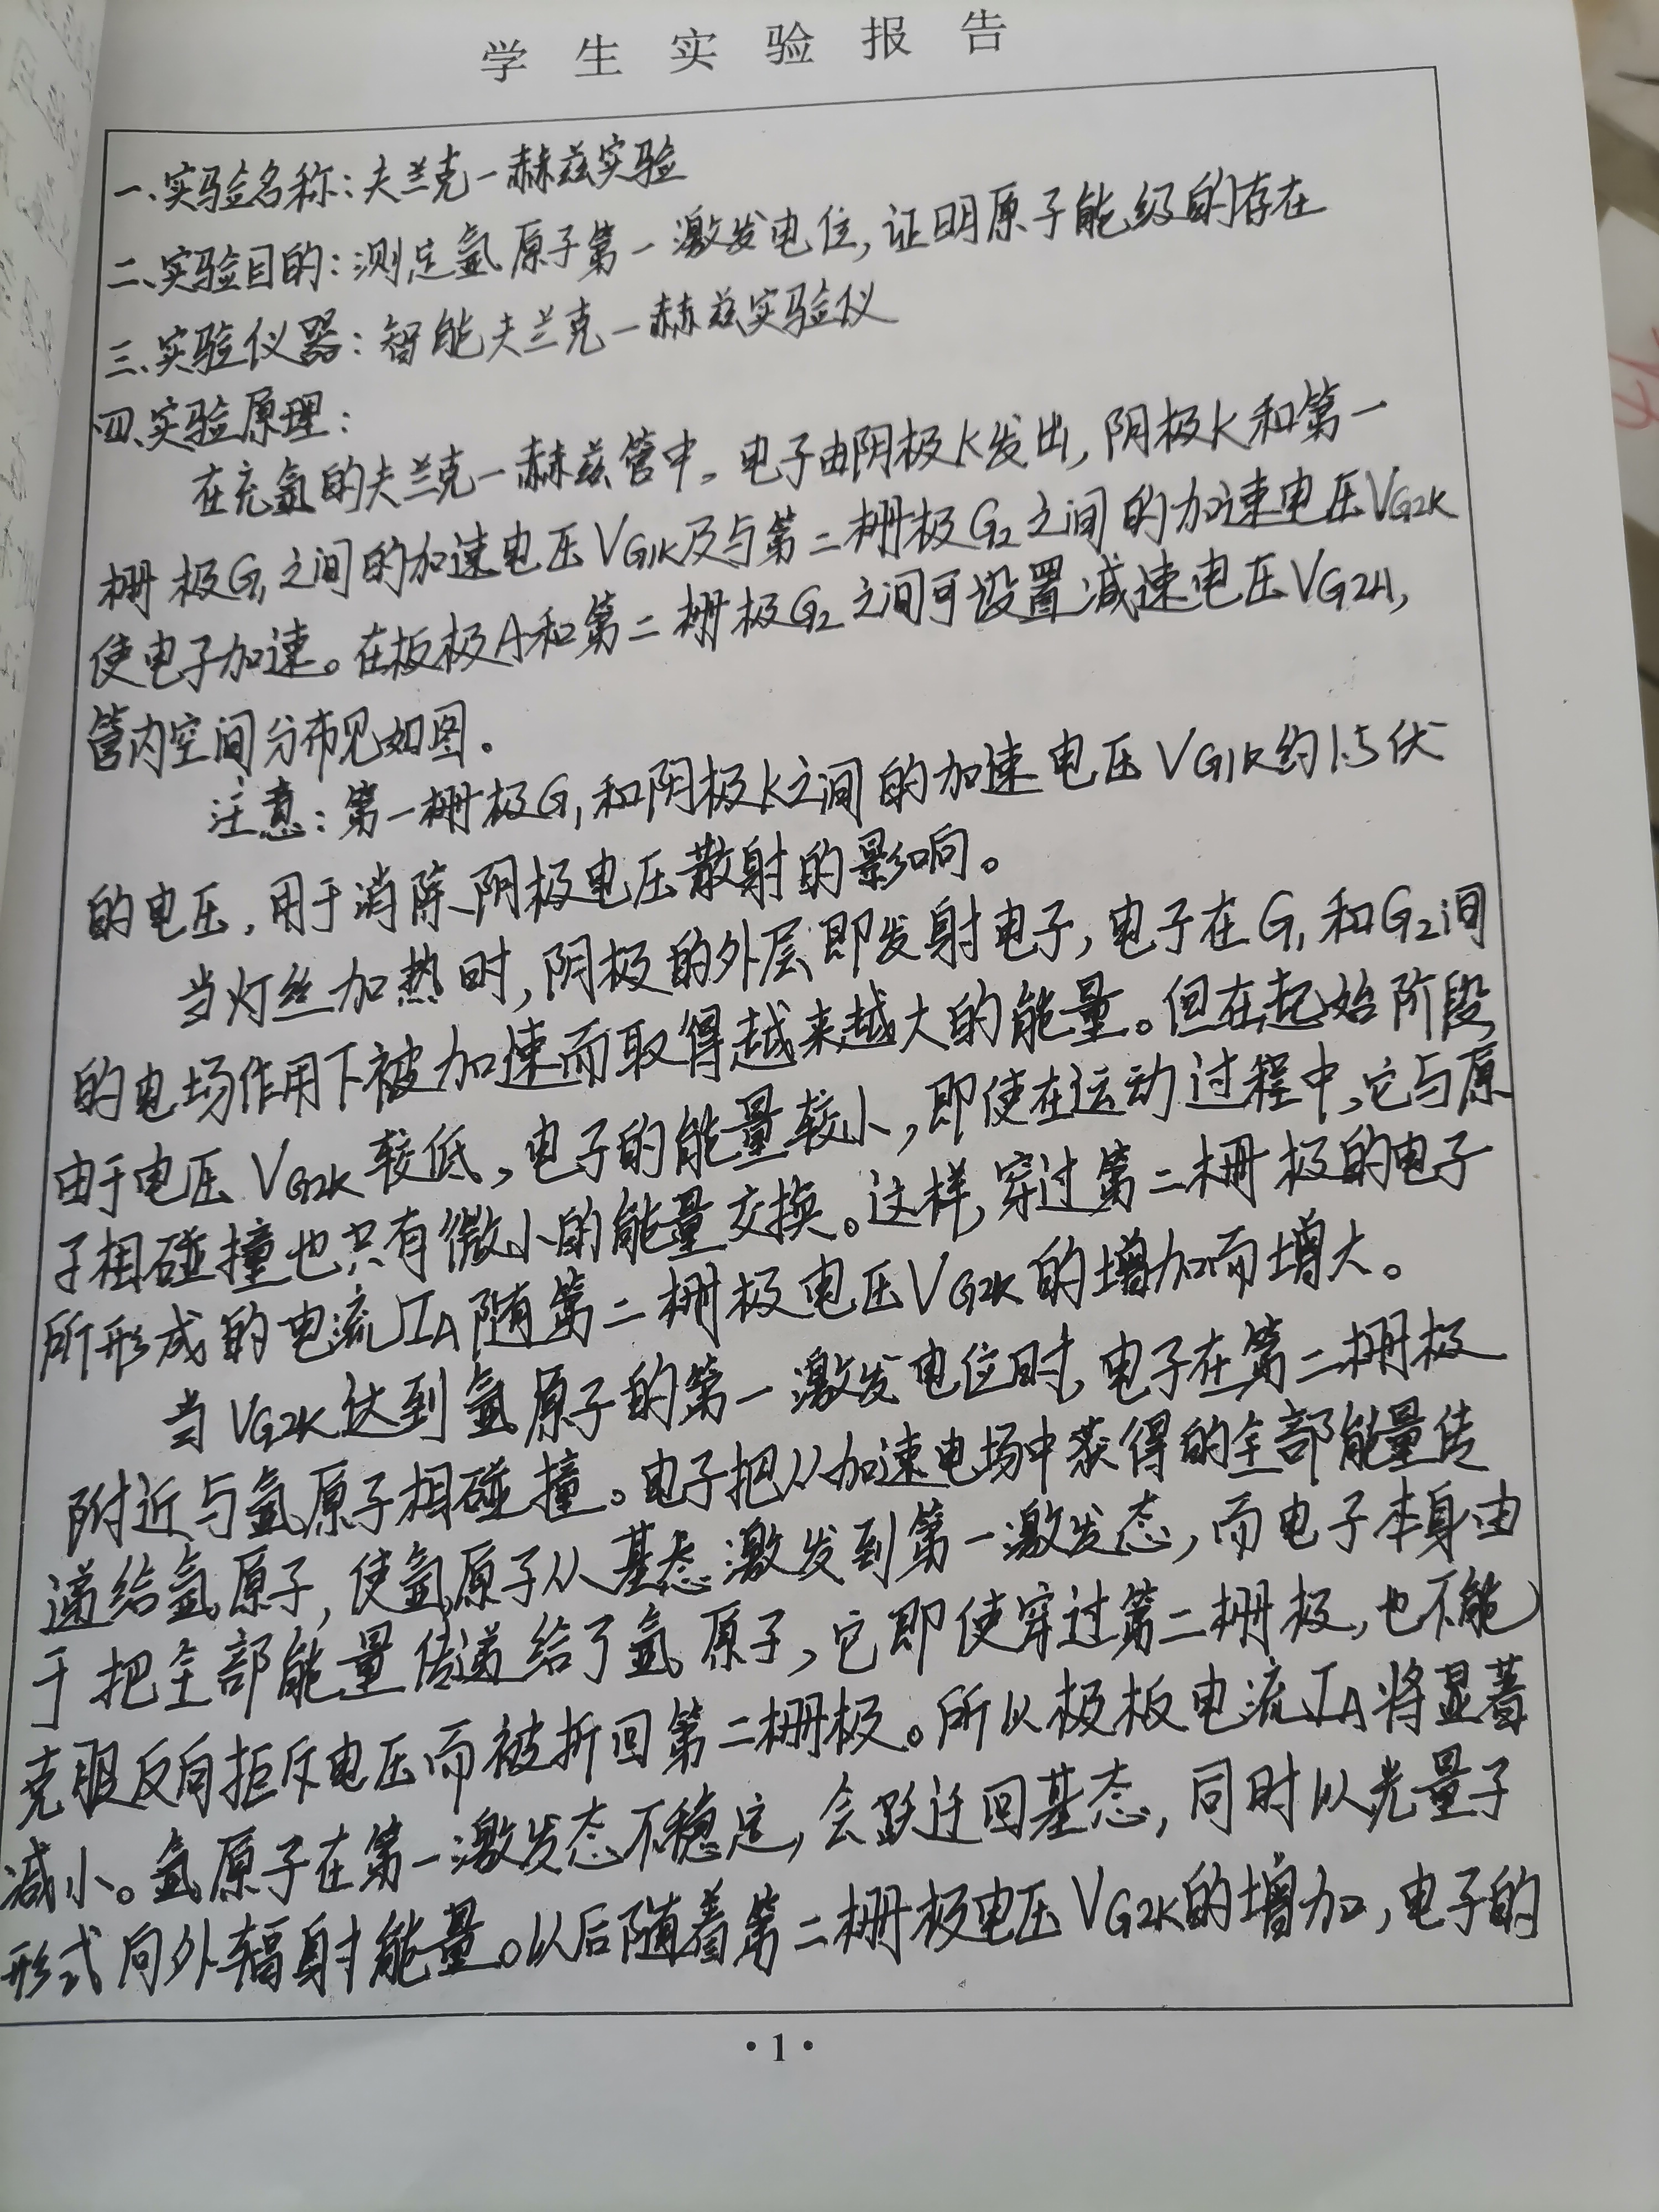 学生实验报告
一、实验名称：夫兰克一赫兹实验
二、实验目的：测定氩原子第一激发电位，证明原子能级的存在
三、实验仪器：智能夫兰克一赫兹实验仪
四、实验原理：
在充氩的夫兰克一赫兹管中。电子由阴极K发出，阴极K和第一
栅极G₁之间的加速电压VG1K及与第二栅极G₂之间的加速电压VG2K
使电子加速。在板极A和第二栅极G₂之间可设置减速电压VG2A，
管内空间分布见如图。
注意：第一栅极G₁和阴极K之间的加速电压VG1K约1.5伏
的电压，用于消除阴极电压散射的影响。
当灯丝加热时，阴极的外层即发射电子，电子在G₁和G₂间
的电场作用下被加速而取得越来越大的能量。但在起始阶段
由于电压VG2K较低，电子的能量较小，即使在运动过程中，它与原
子相碰撞也只有微小的能量交换。这样，穿过第二栅极的电子
所形成的电流IA随第二栅极电压VG2K的增加而增大。
当VG2K达到氩原子的第一激发电位时，电子在第二栅极
附近与氩原子相碰撞。电子把从加速电场中获得的全部能量传
递给氩原子，使氩原子从基态激发到第一激发态，而电子本身由
于把全部能量传递给了氩原子，它即使穿过第二栅极，也不能
克服反向拒斥电压而被折回第二栅极。所以极板电流IA将显著
减小。氩原子在第一激发态不稳定，会跃迁回基态，同时以光量子
形式向外辐射能量。以后随着第二栅极电压VG2K的增加，电子的
·1·